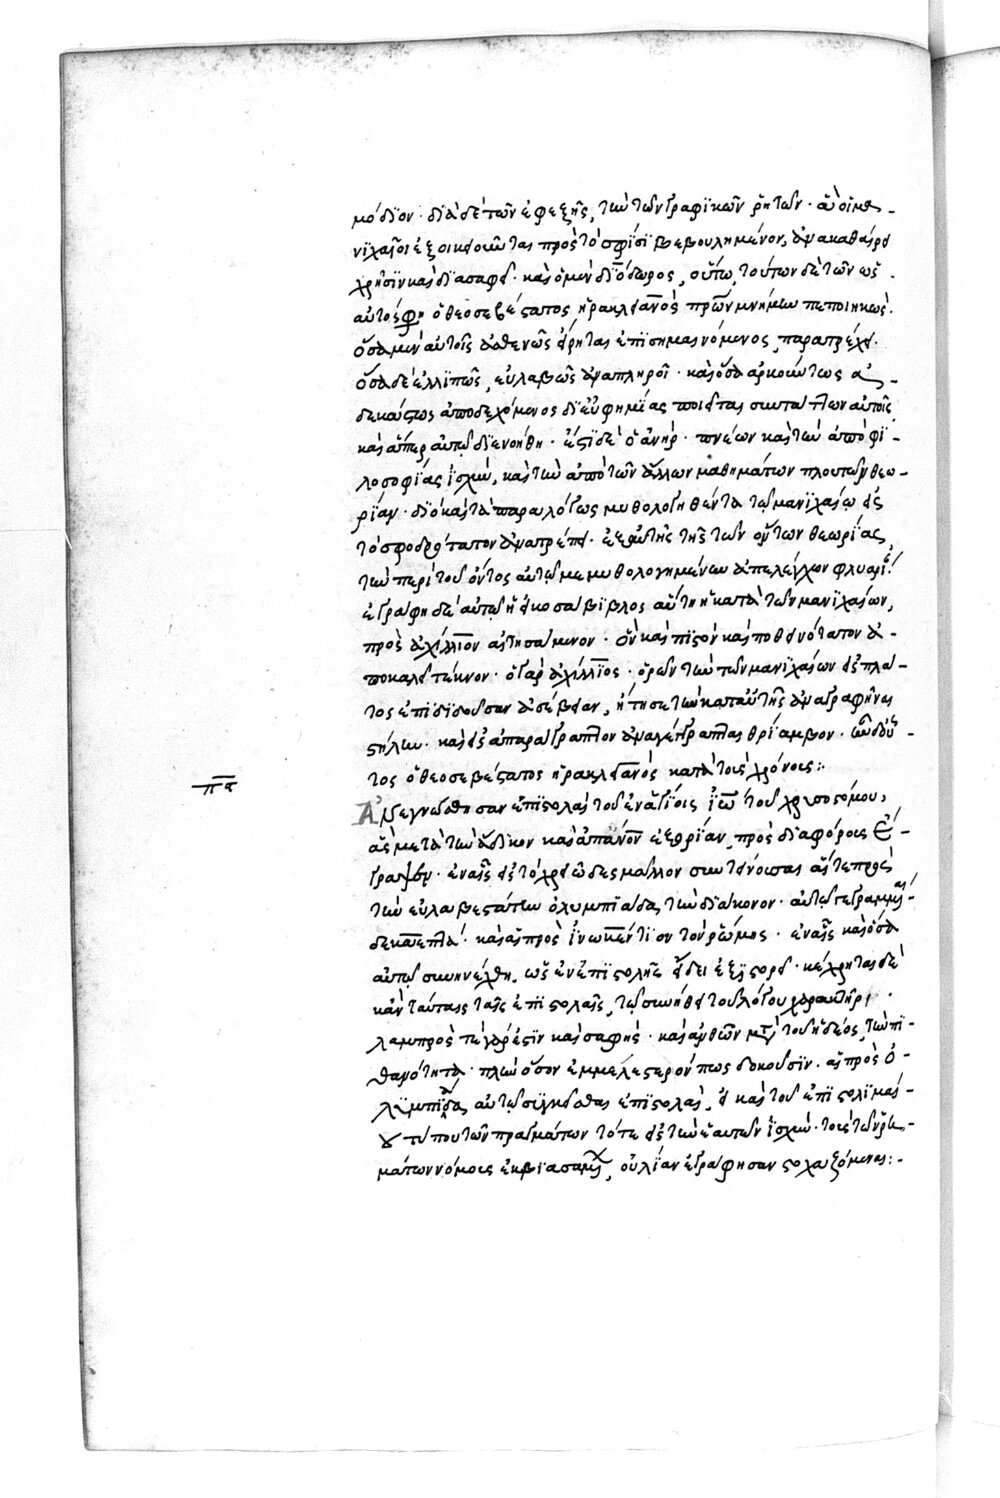 μόδϊον · δϊὰ δὲ τῶν ἐφεξῆς, τὴν τῶν γραφϊκῶν ῥητῶν · ἃ οἱ μα-
νϊχαῖοι ἐξοικειοῦνται πρὸς τὸ σφίσϊ βεβουλημένον, ἀνακαθαίρει
χρῆσϊν καὶ δϊασαφεῖ · καὶ ὁ μὲν δϊόδωρος, οὕτω, τούτων δὲ τῶν ὡς
αὐτὸς φη ὁ θεοσεβέστατος ἡρακλειανὸς πρῶν μνήμην πεποιηκὼς.
ὅσα μὲν αὐτοῖς ἀσθενῶς εἴρηται ἐπϊσημαινόμενος, παρατρέχει.
ὅσα δὲ ἐλλϊπῶς, εὐλαβῶς ἀναπληροῖ · καὶ ὅσα ἀρκούντως ἀ-
δεκάστως ἀποδεχόμενος δϊ εὐφημίας ποιεῖται συντάττων αὐτοῖς
καὶ ἅπερ αὐτῷ δϊενοήθη · ἔστϊ δὲ ὁ ἀνὴρ · πνέων καὶ τὴν ἀπὸ φϊ-
λοσοφίας ἰσχύν, καὶ τὴν ἀπὸ τῶν ἄλλων μαθημάτων πλουτῶν θεω-
ρίαν · δϊὸ καὶ τὰ παραλόγως μυθολογηθέντα τῷ μανϊχαίῳ εἰς
τὸ σφοδρότατον ἀνατρέπει · ἐξ αὐτῆς τῆς τῶν ὄντων θεωρίας
τὴν περὶ τοῦ ὄντος αὐτῷ μεμυθολογημένην ἀπελέγχων φλυαρίαν
ἐγράφη δὲ αὐτῷ ἡ εἰκοσάβϊβλος αὕτη ἡ κατὰ τῶν μανϊχαίων,
πρὸς ἀχίλλϊον αἰτησάμενον · ὃν καὶ πϊστὸν καὶ ποθεινότατον ἀ-
ποκαλεῖ τέκνον · ὁ γὰρ ἀχίλλϊος · ὁρῶν τὴν τῶν μανϊχαίων εἰς πλά-
τος ἐπϊδϊδοῦσαν ἀσέβειαν, ᾔτησε τὴν κατ' αὐτῆς ἀναγραφῆναι
στήλην · καὶ εἰς ἀπαράγραπτον ἀναγέγραπται θρίαμβον · ὧν οὗ-
τος ὁ θεοσεβέστατος ἡρακλειανὸς κατὰ τοὺς χρόνους :·
πϛ
Ἀνεγνώσθησαν ἐπϊστολαὶ τοῦ ἐν ἁγίοις ἰω τοῦ χρυσοστόμου,
ἃς μετὰ τὴν ἄδϊκον καὶ ἀπάνθρωπον ἐξορίαν, πρὸς δϊαφόρους ἔ-
γραψεν · ἐν αἷς εἰς τὸ χρειῶδες μᾶλλον συντείνουσαι αἵ τε πρὸς
τὴν εὐλαβεστάτην ὀλυμπϊάδα τὴν δϊάκονον · αὐτῷ γεγραμμέναι
δεκαεπτά · καὶ αἱ πρὸς ἰνωκέντϊον τὸν ῥώμης · ἐν αἷς καὶ ὅσα
αὐτῷ συνηνέχθη, ὡς ἐν ἐπϊστολῆς εἴδει ἐξϊστορεῖ · κέχρηται δὲ
κἀν ταύταις ταῖς ἐπϊστολαῖς, τῷ συνήθει τοῦ λόγου χαρακτῆρι ·
λαμπρὸς τε γάρ ἐστϊν καὶ σαφὴς · καὶ ἀνθῶν μετὰ τοῦ ἡδέος, τὴν πϊ-
θανότητα · πλὴν ὅσον ἐμμελέστερόν πως δοκοῦσϊν · αἱ πρὸς ὀ-
λυμπϊάδα αὐτῷ συγκεῖσθαι ἐπϊστολαὶ, εἰ καὶ τοῦ ἐπϊστολϊμαί-
ου τύπου τῶν πραγμάτων τότε εἰς τὴν ἑαυτῶν ἰσχὺν · τοὺς τῶν γραμ-
μάτων νόμους ἐκβϊασαμένων, οὐ λίαν ἐγράφησαν στοχαζόμεναι :-